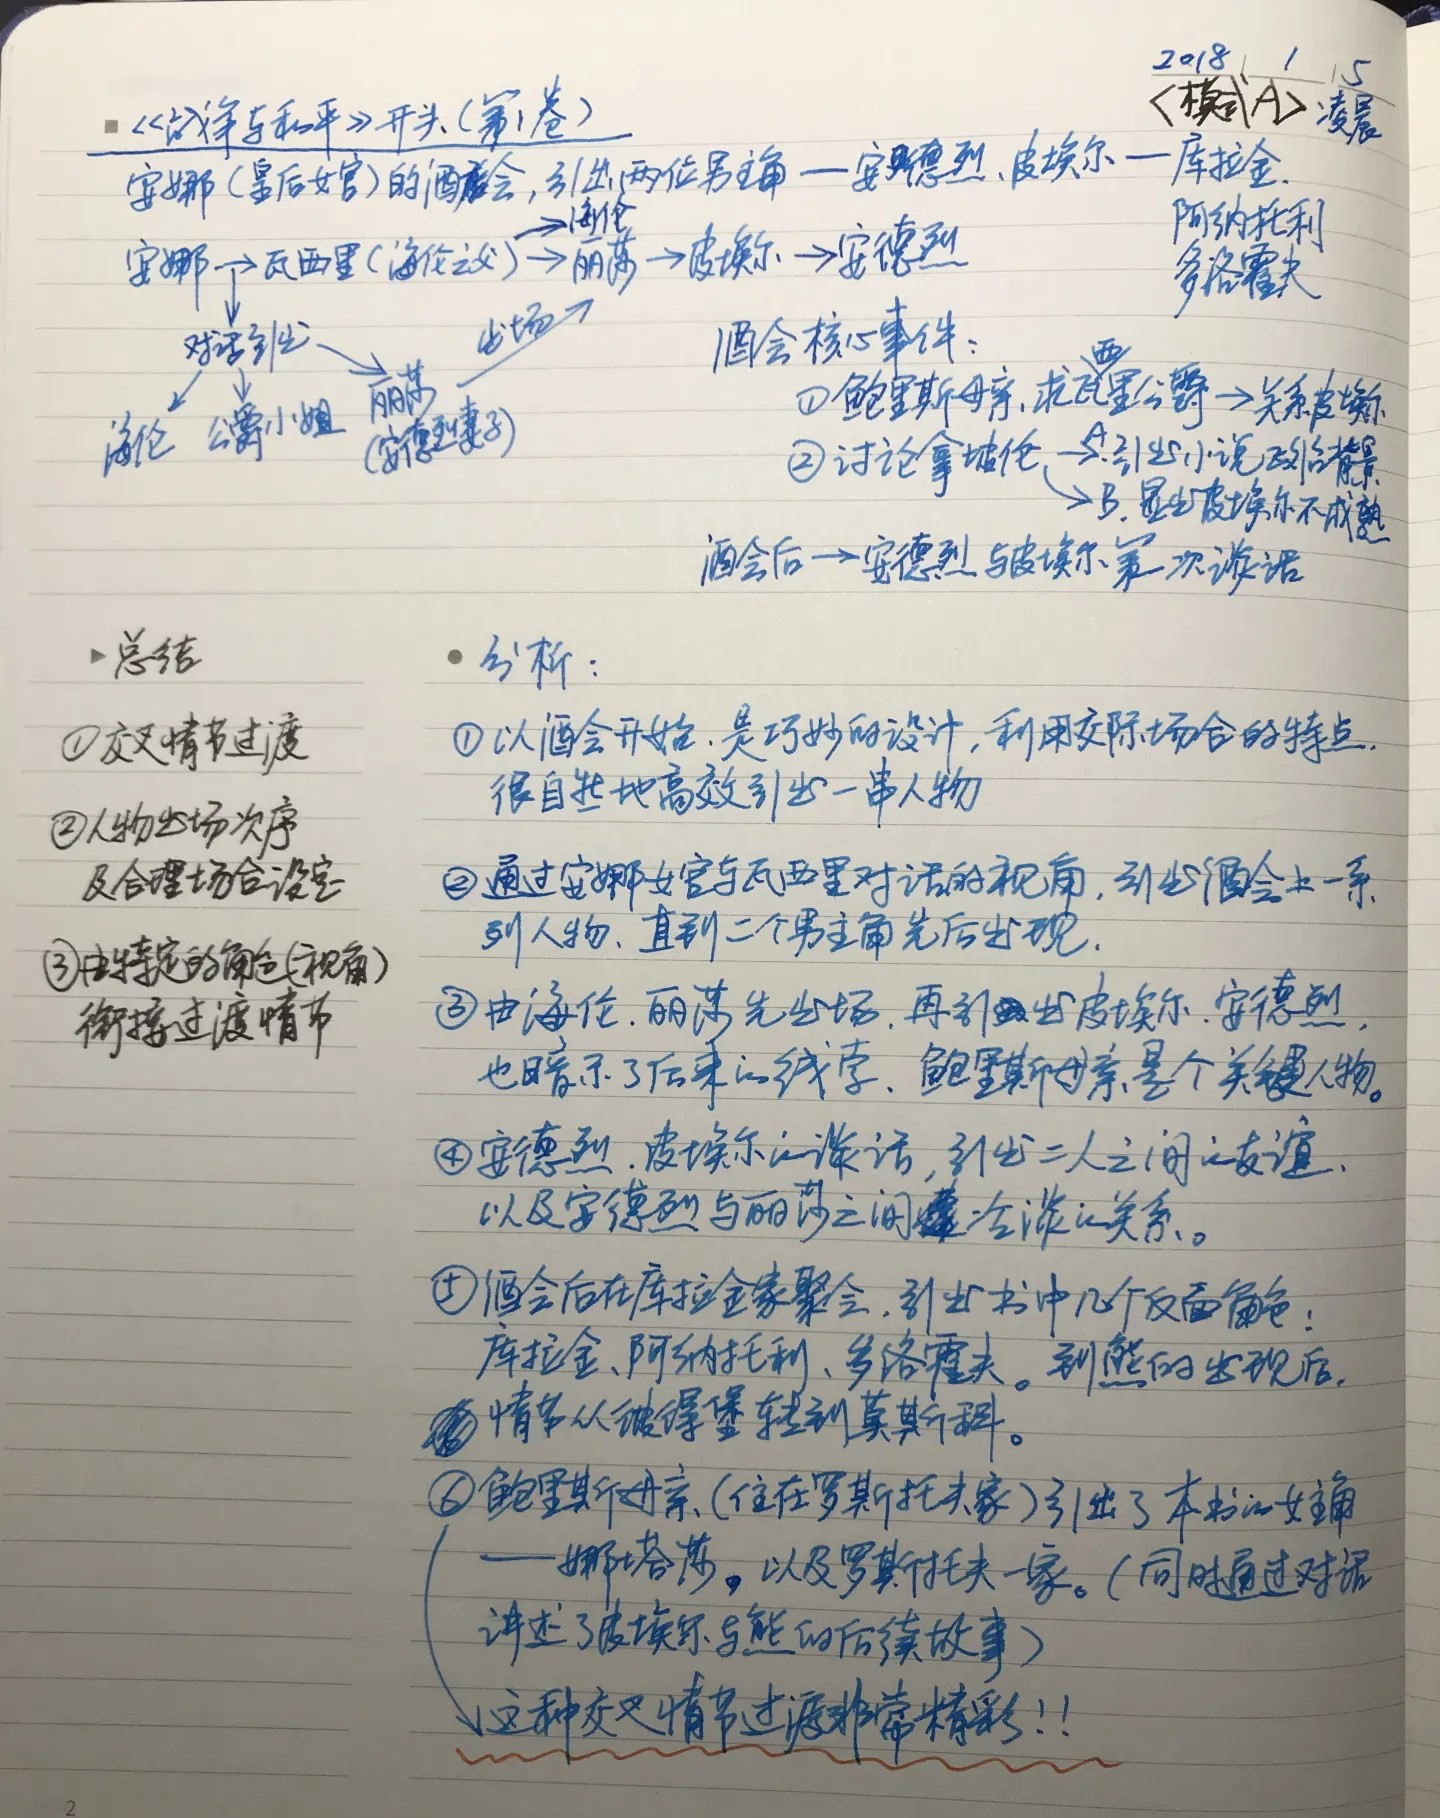 2018 1 15
<模式A> 凌晨
《战争与和平》开头(第1卷)
安娜(皇后女官)的酒会,引出两位男主角—安德烈、皮埃尔—库拉金.
阿纳托利
多洛霍夫
→海伦
安娜→瓦西里(海伦之父)→丽莎→皮埃尔→安德烈
对话引出
出场
海伦 公爵小姐 丽莎
(安德烈妻子)
酒会核心事件:
①鲍里斯母亲求瓦西里公爵→关系皮埃尔
②讨论拿破伦→A.引出小说政治背景
→B.显出皮埃尔不成熟
酒会后→安德烈与皮埃尔第一次谈话
▶总结
①交叉情节过渡
②人物出场次序
及合理场合设定
③由特定的角色(视角)
衔接过渡情节
•分析:
①以酒会开始.是巧妙的设计,利用交际场合的特点.
很自然地高效引出一串人物
②通过安娜女官与瓦西里对话的视角,引出酒会上一系
列人物、直到二个男主角先后出现.
③由海伦.丽莎先出场.再引出皮埃尔.安德烈,
也暗示了后来的线索、鲍里斯母亲是个关键人物。
④安德烈.皮埃尔的谈话,引出二人之间的友谊、
以及安德烈与丽莎之间冷淡的关系。
⑤酒会后在库拉金家聚会,引出书中几个反面角色:
库拉金、阿纳托利、多洛霍夫。到熊的出现后,
情节从彼得堡转到莫斯科。
⑥鲍里斯母亲(住在罗斯托夫家)引出了本书的女主角
——娜塔莎。以及罗斯托夫一家。(同时通过对话
讲述了皮埃尔与熊的后续故事)
↘这种交叉情节过渡非常精彩!!
2